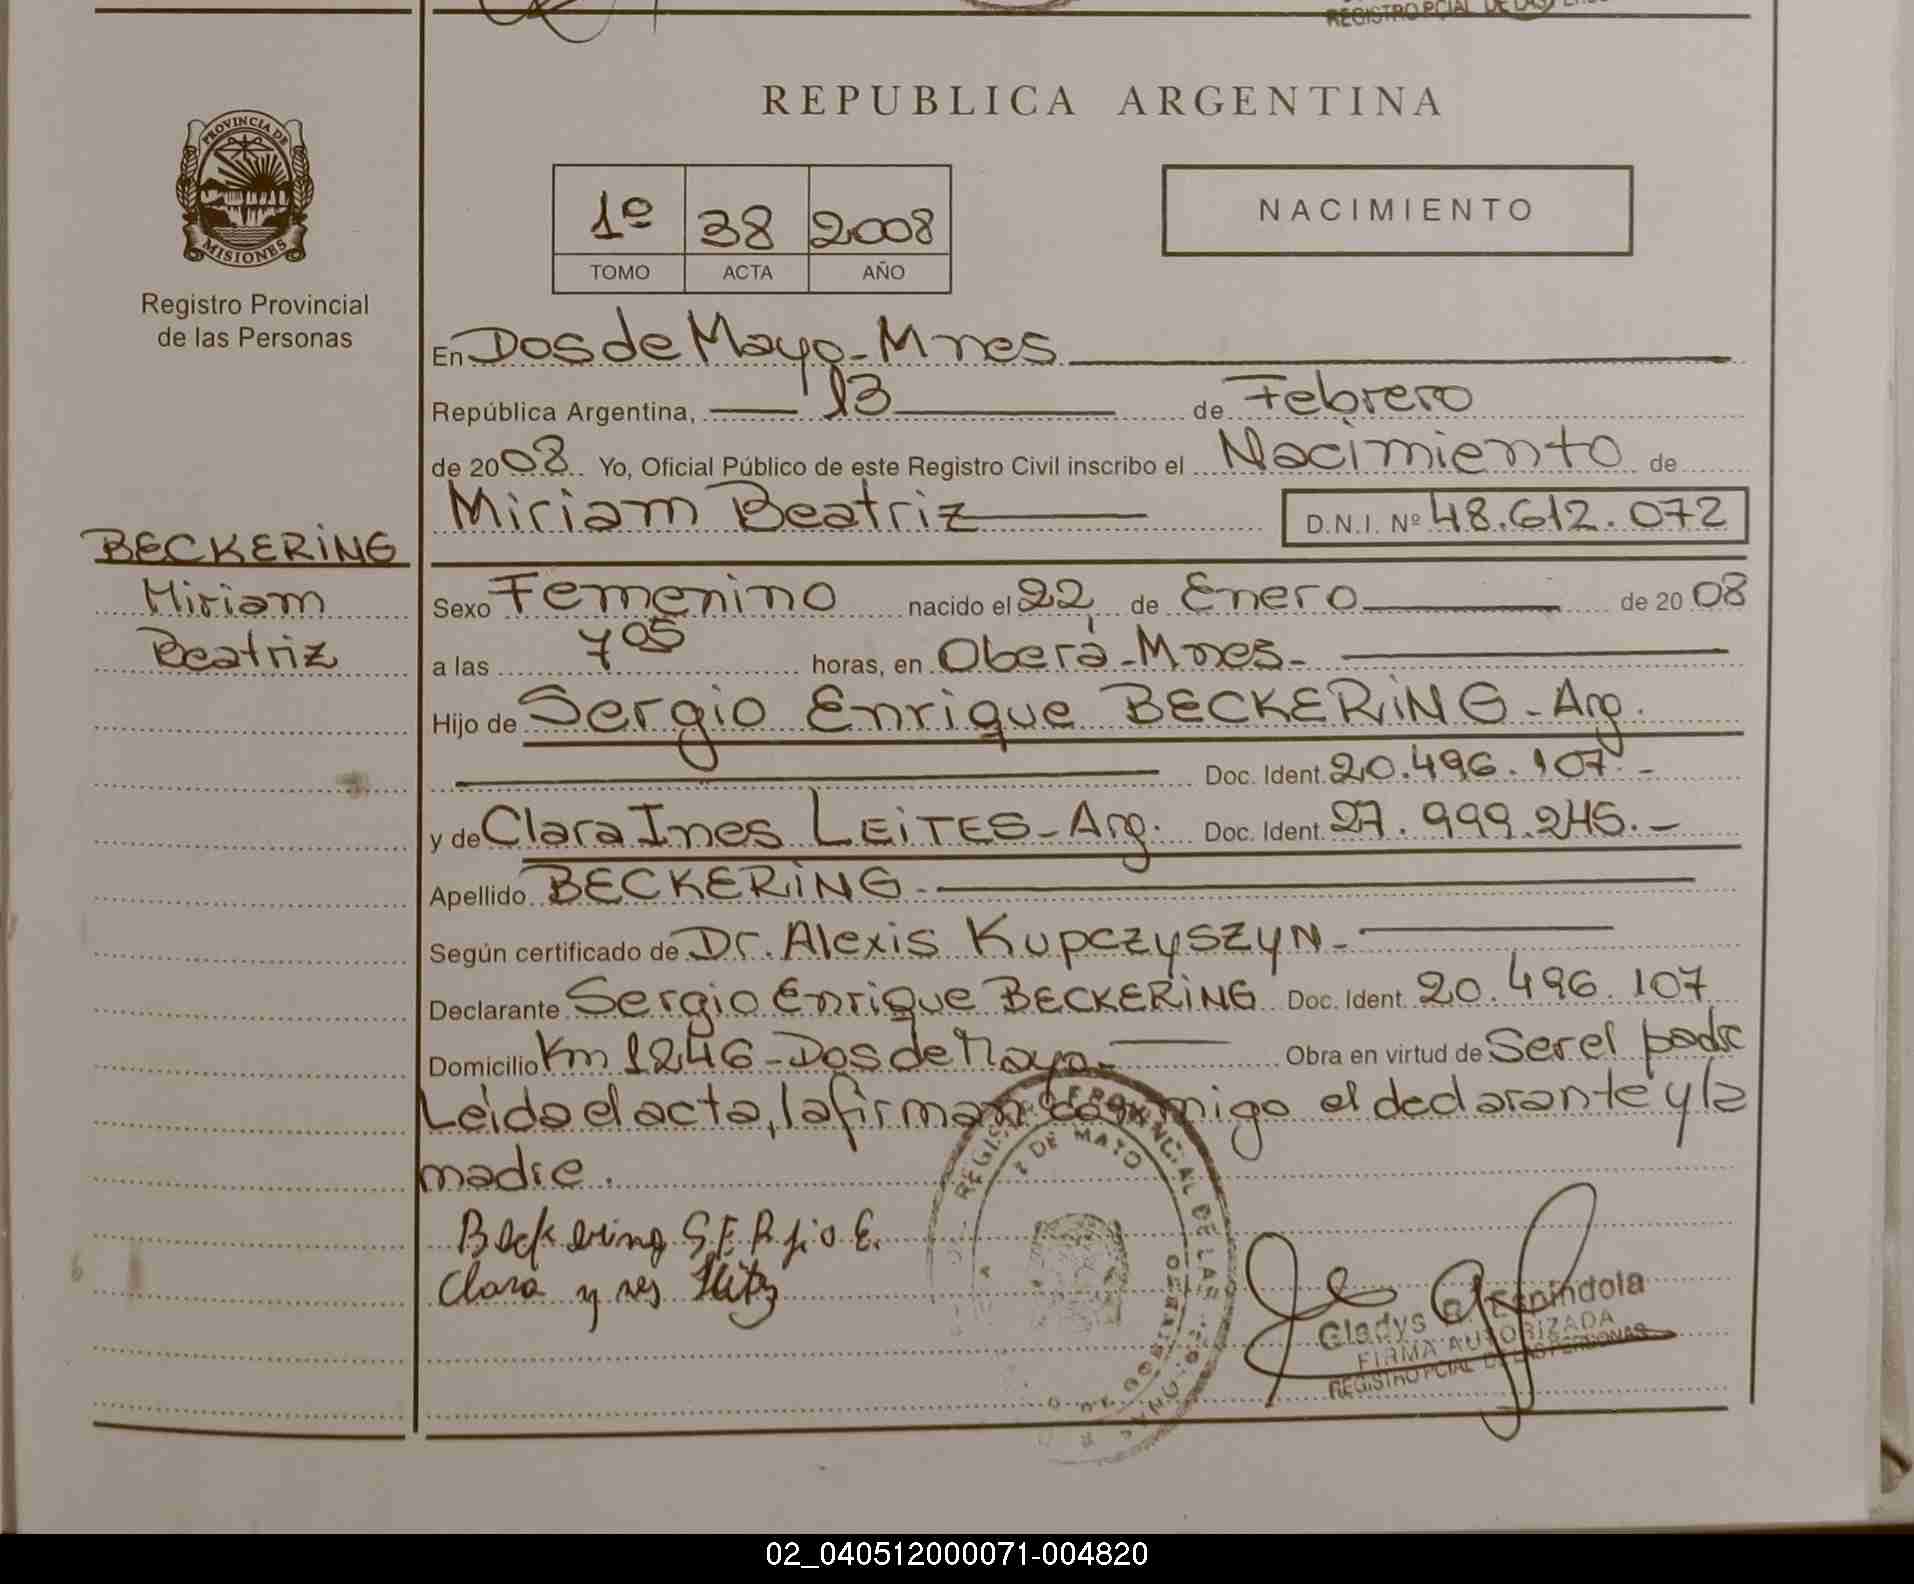 REGISTRO PCIAL DE LAS
REPUBLICA ARGENTINA
PROVINCIA DE
MISIONES
Registro Provincial
de las Personas
1º 38 2008
TOMO ACTA AÑO
NACIMIENTO
En Dos de Mayo - Mnes
República Argentina, 13 de Febrero
de 2008 Yo, Oficial Público de este Registro Civil inscribo el Nacimiento de
Miriam Beatriz D.N.I. Nº 48.612.072
BECKERING
Miriam
Beatriz
Sexo Femenino nacido el 22 de Enero de 2008
a las 7 05 horas, en Oberá - Mnes -
Hijo de Sergio Enrique BECKERING - Arg.
Doc. Ident. 20.496.107 -
y de Clara Ines LEITES - Arg. Doc. Ident. 27.999.245. -
Apellido BECKERING -
Según certificado de Dr. Alexis Kupczyszyn -
Declarante Sergio Enrique BECKERING Doc. Ident. 20.496.107
Domicilio Km 1246 - Dos de Mayo - Obra en virtud de Ser el padre
Leída el acta, la firman conmigo el declarante y la
madre.
Beckering SERjio E.
Clara y nes
REGISTRO PROVINCIAL DE LAS
2 DE MAYO
Gladys Espíndola
FIRMA AUTORIZADA
REGISTRO PCIAL DE LAS PERSONAS
02_040512000071-004820